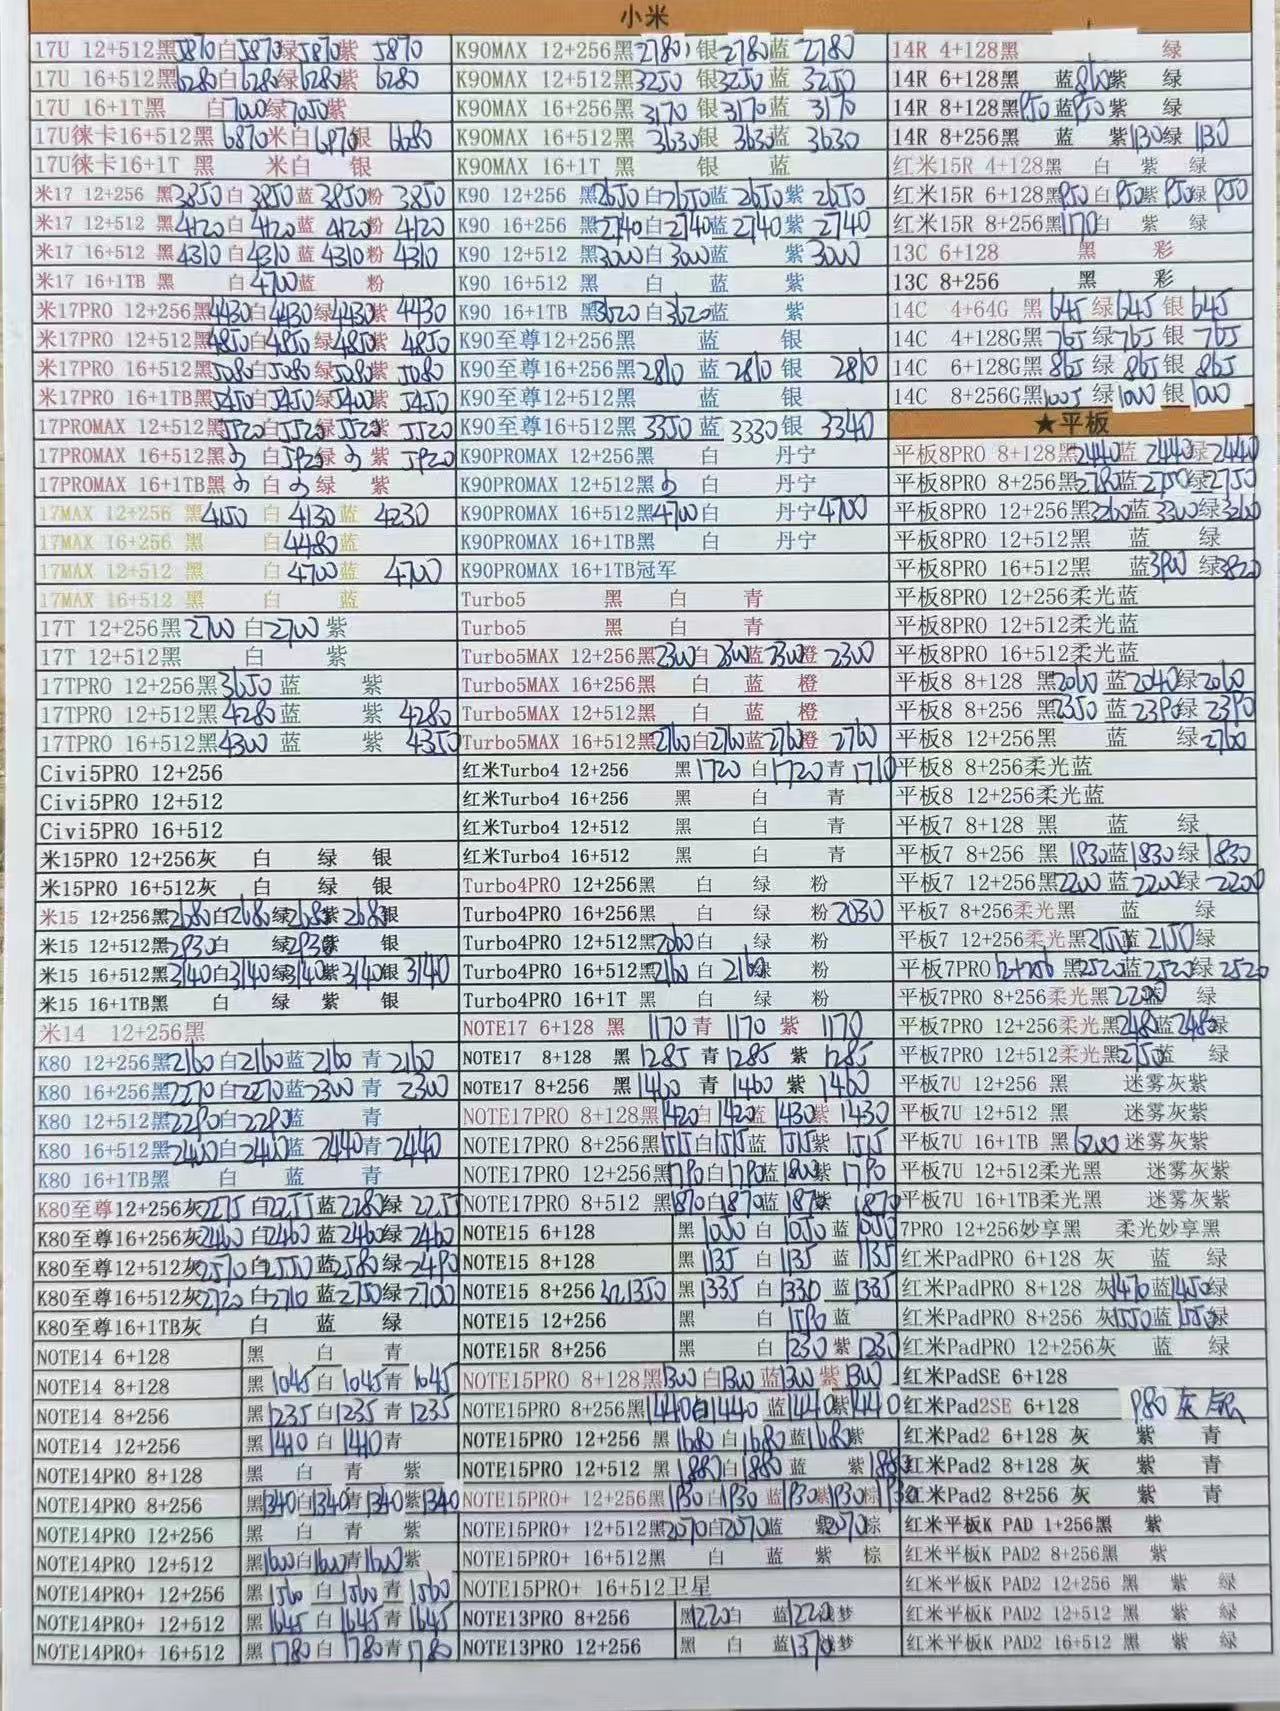 小米
17U 12+512黑5870白5870绿5870紫 5870
17U 16+512黑6280白6280绿6280紫 6280
17U 16+1T黑 白7000绿7050紫
17U徕卡16+512黑 6870米白6970银 6680
17U徕卡16+1T 黑 米白 银
米17 12+256 黑3850白3850蓝3850粉 3850
米17 12+512 黑4120白4120蓝4120粉 4120
米17 16+512 黑4310白4310蓝4310粉4310
米17 16+1TB 黑 白4700蓝 粉
米17PRO 12+256黑4430白4430绿4430紫 4430
米17PRO 12+512黑4850白4850绿4850紫 4850
米17PRO 16+512黑5080白5080绿5080紫 5080
米17PRO 16+1TB黑5450白5450绿5400紫 5450
17PROMAX 12+512黑5520白5520绿5520紫 5520
17PROMAX 16+512黑 白5920绿 紫 5920
17PROMAX 16+1TB黑 白 绿 紫
17MAX 12+256 黑4150 白4130蓝 4230
17MAX 16+256 黑 白4480蓝
17MAX 12+512 黑 白4700蓝 4700
17MAX 16+512 黑 白 蓝
17T 12+256黑2700 白2700紫
17T 12+512黑 白 紫
17TPRO 12+256黑3650蓝 紫
17TPRO 12+512黑4280蓝 紫 4280
17TPRO 16+512黑4300蓝 紫 4350
Civi5PRO 12+256
Civi5PRO 12+512
Civi5PRO 16+512
米15PRO 12+256灰 白 绿 银
米15PRO 16+512灰 白 绿 银
米15 12+256黑2680白2680绿2680紫2680银
米15 12+512黑2930白 绿2930紫 银
米15 16+512黑3140白3140绿3140紫3140银3140
米15 16+1TB黑 白 绿 紫 银
米14 12+256黑
K80 12+256黑2160白2160蓝2160 青2160
K80 16+256黑2270白2270蓝2300 青 2300
K80 12+512黑2290白2290蓝 青
K80 16+512黑2400白2400蓝2440青2440
K80 16+1TB黑 白 蓝 青
K80至尊12+256灰2275白2255蓝2280绿 2255
K80至尊16+256灰2460白2460蓝2460绿2460
K80至尊12+512灰2570白2550蓝2580绿2490
K80至尊16+512灰2720白2710蓝2750绿2700
K80至尊16+1TB灰 白 蓝 绿
NOTE14 6+128 黑 白 青
NOTE14 8+128 黑 1045白 1045青 1045
NOTE14 8+256 黑 1235白1235青 1235
NOTE14 12+256 黑1410白1410青
NOTE14PRO 8+128 黑 白 青 紫
NOTE14PRO 8+256 黑1340白1340青1340紫1340
NOTE14PRO 12+256 黑 白 青 紫
NOTE14PRO 12+512 黑1600白1600青1600紫
NOTE14PRO+ 12+256 黑1560 白 1560青 1560
NOTE14PRO+ 12+512 黑1645 白 1645青 1645
NOTE14PRO+ 16+512 黑1780 白 1780青1780
K90MAX 12+256黑2780 银2780蓝 2780
K90MAX 12+512黑3250 银3250蓝 3250
K90MAX 16+256黑 3170 银3170蓝 3170
K90MAX 16+512黑 3630银3630蓝 3630
K90MAX 16+1T 黑 银 蓝
K90 12+256 黑2650白2650蓝2650紫2650
K90 16+256 黑2740白2740蓝2740紫2740
K90 12+512 黑3000白3000蓝 紫3000
K90 16+512 黑 白 蓝 紫
K90 16+1TB 黑3620白3620蓝 紫
K90至尊12+256黑 蓝 银
K90至尊16+256黑2810 蓝2810银 2810
K90至尊12+512黑 蓝 银
K90至尊16+512黑 3350蓝 3330银 3340
K90PROMAX 12+256黑 白 丹宁
K90PROMAX 12+512黑 白 丹宁
K90PROMAX 16+512黑4700白 丹宁4700
K90PROMAX 16+1TB黑 白 丹宁
K90PROMAX 16+1TB冠军
Turbo5 黑 白 青
Turbo5 黑 白 青
Turbo5MAX 12+256黑2300白2300蓝2300橙 2300
Turbo5MAX 16+256黑 白 蓝 橙
Turbo5MAX 12+512黑 白 蓝 橙
Turbo5MAX 16+512黑2760白2760蓝2760橙 2760
红米Turbo4 12+256 黑1720 白1720青1710
红米Turbo4 16+256 黑 白 青
红米Turbo4 12+512 黑 白 青
红米Turbo4 16+512 黑 白 青
Turbo4PRO 12+256黑 白 绿 粉
Turbo4PRO 16+256黑 白 绿 粉2030
Turbo4PRO 12+512黑2060白 绿 粉
Turbo4PRO 16+512黑2160白2160绿 粉
Turbo4PRO 16+1T 黑 白 绿 粉
NOTE17 6+128 黑 1170青 1170 紫 1170
NOTE17 8+128 黑 1285青1285 紫 1285
NOTE17 8+256 黑 1460 青 1460 紫 1460
NOTE17PRO 8+128黑1420白1420蓝1430紫1430
NOTE17PRO 8+256黑1515白1515蓝1515紫1515
NOTE17PRO 12+256黑1790白1790蓝1800紫1790
NOTE17PRO 8+512 黑1870白1870蓝187紫 1870
NOTE15 6+128 黑1050白 1050蓝1050
NOTE15 8+128 黑1135白 1135蓝1135
NOTE15 8+256 黑1335白 1330蓝1335
NOTE15 12+256 黑 白1590蓝
NOTE15R 8+256 黑 白1230紫1230
NOTE15PRO 8+128黑1300白1300蓝1300紫1300
NOTE15PRO 8+256黑1440白1440蓝1440紫1440
NOTE15PRO 12+256 黑1680白1680蓝1680紫
NOTE15PRO 12+512 黑1880白1880蓝 紫1880
NOTE15PRO+ 12+256黑1930白1930蓝1930紫1930棕1930
NOTE15PRO+ 12+512黑2070白2070蓝 紫2070棕
NOTE15PRO+ 16+512黑 白 蓝 紫 棕
NOTE15PRO+ 16+512卫星
NOTE13PRO 8+256 黑1220白 蓝1220浅梦
NOTE13PRO 12+256 黑 白 蓝1370浅梦
14R 4+128黑 绿
14R 6+128黑 蓝860紫 绿
14R 8+128黑950蓝950紫 绿
14R 8+256黑 蓝 紫1130绿 1130
红米15R 4+128黑 白 紫 绿
红米15R 6+128黑950白950紫950绿 950
红米15R 8+256黑1170白 紫 绿
13C 6+128 黑 彩
13C 8+256 黑 彩
14C 4+64G 黑 645绿645银645
14C 4+128G黑765绿765银 765
14C 6+128G黑865绿 865银 865
14C 8+256G黑1005绿1000银 1000
★平板
平板8PRO 8+128黑2440蓝2440绿2440
平板8PRO 8+256黑2780蓝2750绿2750
平板8PRO 12+256黑3260蓝3300绿3260
平板8PRO 12+512黑 蓝 绿
平板8PRO 16+512黑 蓝3900绿3820
平板8PRO 12+256柔光蓝
平板8PRO 12+512柔光蓝
平板8PRO 16+512柔光蓝
平板8 8+128 黑2060蓝2040绿2060
平板8 8+256 黑2350蓝2390绿2390
平板8 12+256黑 蓝 绿2760
平板8 8+256柔光蓝
平板8 12+256柔光蓝
平板7 8+128 黑 蓝 绿
平板7 8+256 黑 1830蓝1830绿1830
平板7 12+256黑2200蓝2200绿2200
平板7 8+256柔光黑 蓝 绿
平板7 12+256柔光黑2150蓝2150绿
平板7PRO 12+256 黑2520蓝2520绿2520
平板7PRO 8+256柔光黑2200蓝 绿
平板7PRO 12+256柔光黑2480蓝2480绿
平板7PRO 12+512柔光黑2750蓝 绿
平板7U 12+256 黑 迷雾灰紫
平板7U 12+512 黑 迷雾灰紫
平板7U 16+1TB 黑6200迷雾灰紫
平板7U 12+512柔光黑 迷雾灰紫
平板7U 16+1TB柔光黑 迷雾灰紫
7PRO 12+256妙享黑 柔光妙享黑
红米PadPRO 6+128 灰 蓝 绿
红米PadPRO 8+128 灰1470蓝1450绿
红米PadPRO 8+256 灰1550蓝1550绿
红米PadPRO 12+256灰 蓝 绿
红米PadSE 6+128
红米Pad2SE 6+128 980 灰 银
红米Pad2 6+128 灰 紫 青
红米Pad2 8+128 灰 紫 青
红米Pad2 8+256 灰 紫 青
红米平板K PAD 1+256黑 紫
红米平板K PAD2 8+256黑 紫
红米平板K PAD2 12+256 黑 紫 绿
红米平板K PAD2 12+512 黑 紫 绿
红米平板K PAD2 16+512 黑 紫 绿